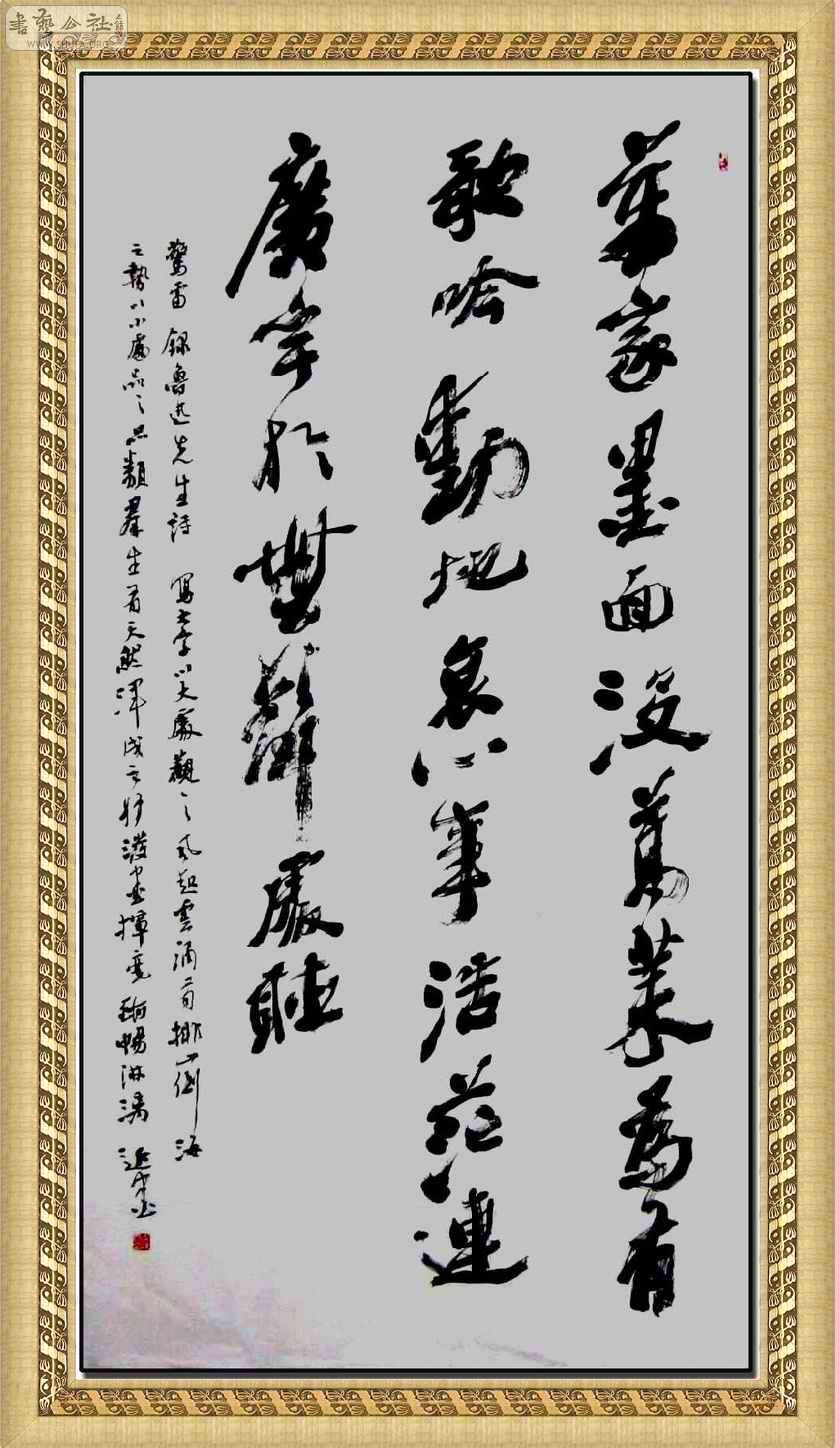 書藝公社
WWW.SHUFA.ORG
萬家墨面沒蒿萊爲有
歌吟動地哀心事浩茫連
廣宇於無聲處聽
驚雷 録魯迅先生詩 寫大字以大處觀之風起雲涌有排山倒海
之勢以小處品之品類羣生有天然渾成之妙潑墨揮毫酣暢淋漓